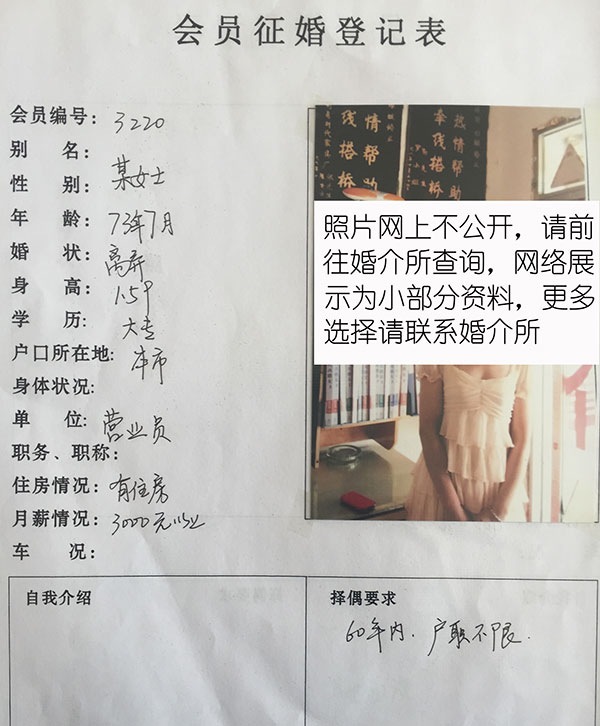 会员征婚登记表
会员编号: 3220
别 名:
性 别: 某女士
年 龄: 73年7月
婚 状: 离异
身 高: 1.59
学 历: 大专
户口所在地: 本市
身体状况:
单 位: 营业员
职务、职称:
住房情况: 有住房
月薪情况: 3000元以上
车 况:
热情帮助
牵线搭桥
热情帮助
牵线搭桥
照片网上不公开，请前
往婚介所查询，网络展
示为小部分资料，更多
选择请联系婚介所
自我介绍
择偶要求
60年内. 户职不限.